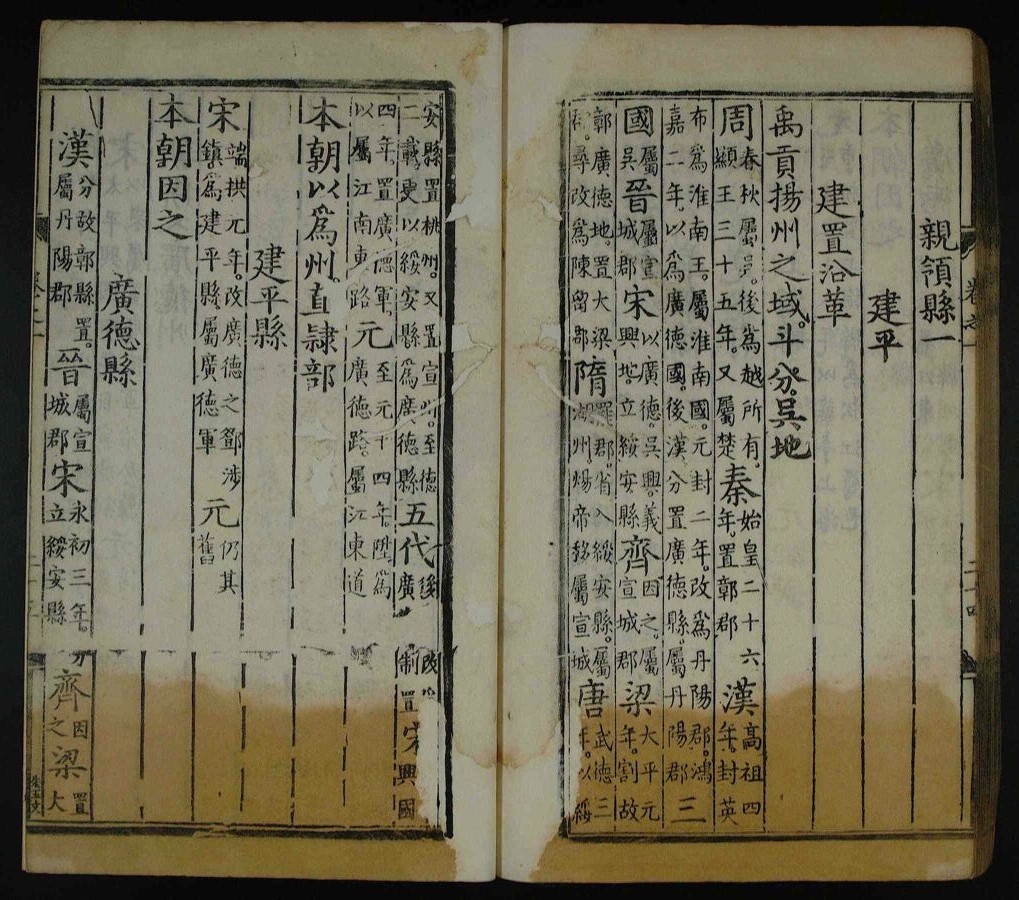 親領縣一
建平
建置沿革
禹貢揚州之域。斗分。吳地
周春秋屬吳。後爲越所有。顯王三十五年。又屬楚秦始皇二十六年。置鄣郡漢高祖四年。封英
布爲淮南王。屬淮南國。元封二年。改爲丹陽郡。鴻嘉二年。以爲廣德國。後漢分置廣德縣。屬丹陽郡三
國屬吳晉屬宣城郡宋以廣德。吳興。義興地。立綏安縣齊因之。屬宣城郡梁大平元年。割故
鄣廣德地。置大梁郡。尋改爲陳留郡隋罷郡。省入綏安縣。屬湖州煬帝移屬宣城唐武德三年。以綏
安縣置桃州。又置宣州。至德二載。更以綏安縣爲廣德縣五代後改廣制置宋興國
四年。置廣德軍。以屬江南東路元至元十四年。陞爲廣德路。屬江東道
本朝以爲州。直隸部
建平縣
宋端拱元年。改廣德之鄧涉鎮。爲建平縣。屬廣德軍元仍其舊
本朝因之
廣德縣
漢分故鄣縣置。屬丹陽郡晉屬宣城郡宋永初三年。分立綏安縣齊因之梁置大